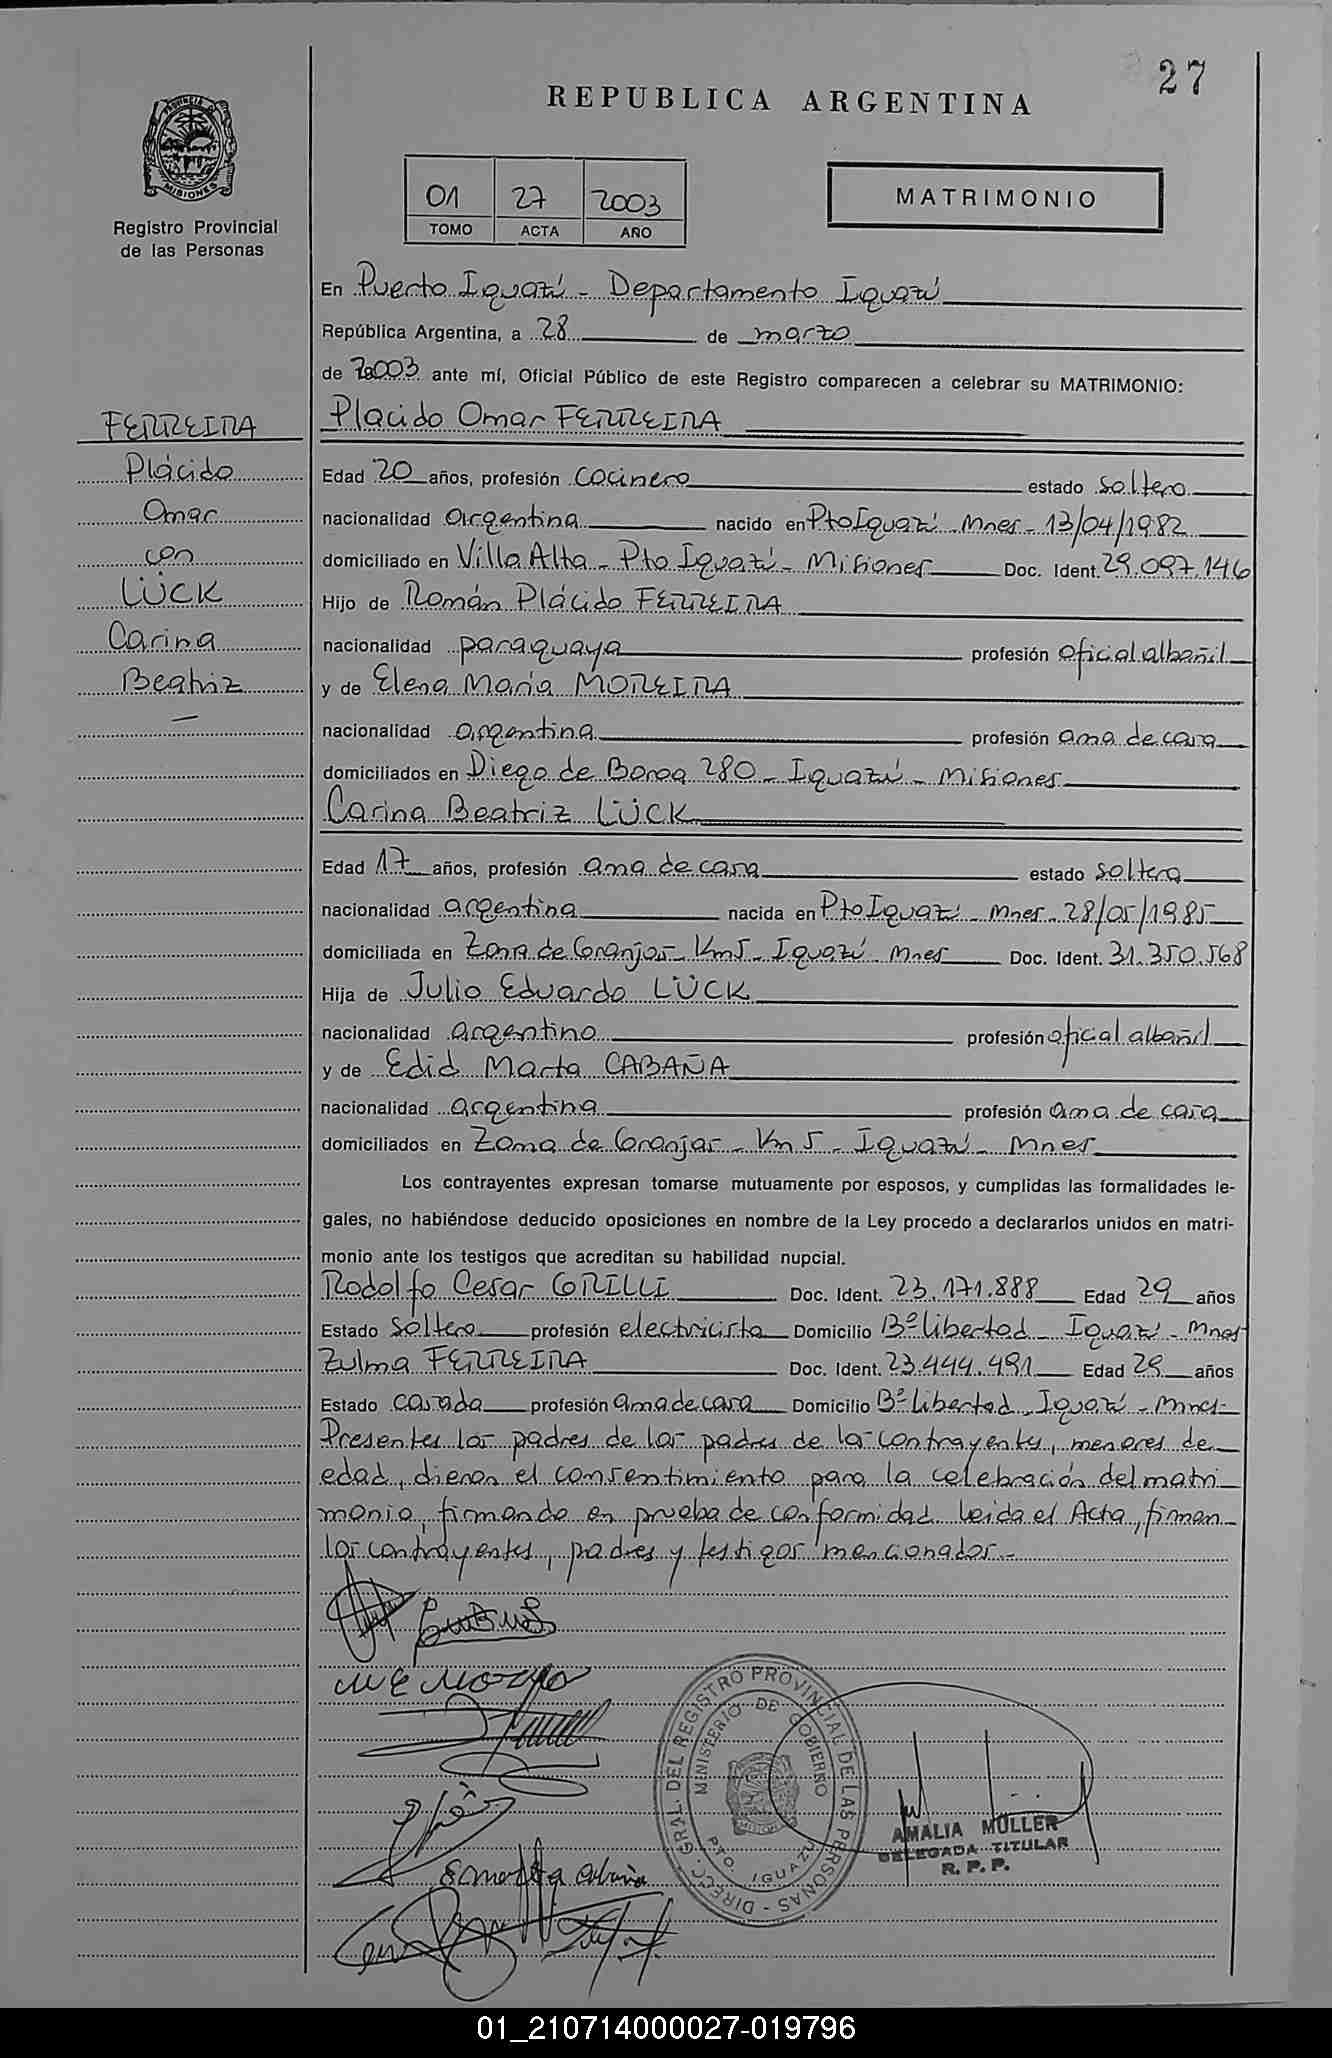 27
REPUBLICA ARGENTINA
PROVINCIA D
MISIONES
Registro Provincial
de las Personas
01 27 2003
TOMO ACTA AÑO
MATRIMONIO
En Puerto Iguazú - Departamento Iguazú
República Argentina, a 28 de marzo
de 2003 ante mí, Oficial Público de este Registro comparecen a celebrar su MATRIMONIO:
FERREIRA
Plácido
Omar
con
LÜCK
Carina
Beatriz
Placido Omar FERREIRA
Edad 20 años, profesión cocinero estado soltero
nacionalidad argentina nacido en Pto Iguazú - Mnes - 13/04/1982
domiciliado en Villa Alta - Pto Iguazú - Misiones Doc. Ident. 29.097.146
Hijo de Román Plácido FERREIRA
nacionalidad paraguaya profesión oficial albañil
y de Elena María MOREIRA
nacionalidad argentina profesión ama de casa
domiciliados en Diego de Boroa 280 - Iguazú - Misiones
Carina Beatriz LÜCK
Edad 17 años, profesión ama de casa estado soltera
nacionalidad argentina nacida en Pto Iguazú - Mnes - 28/05/1985
domiciliada en Zona de Granjas - Km 5 - Iguazú - Mnes Doc. Ident. 31.350.568
Hija de Julio Eduardo LÜCK
nacionalidad argentino profesión oficial albañil
y de Edid Marta CABAÑA
nacionalidad argentina profesión ama de casa
domiciliados en Zona de Granjas - Km 5 - Iguazú - Mnes
Los contrayentes expresan tomarse mutuamente por esposos, y cumplidas las formalidades le-
gales, no habiéndose deducido oposiciones en nombre de la Ley procedo a declararlos unidos en matri-
monio ante los testigos que acreditan su habilidad nupcial.
Rodolfo Cesar GRILLI Doc. Ident. 23.171.888 Edad 29 años
Estado soltero profesión electricista Domicilio Bº libertad - Iguazú - Mnes
Zulma FERREIRA Doc. Ident. 23.444.491 Edad 29 años
Estado casada profesión ama de casa Domicilio Bº Libertad - Iguazú - Mnes-
Presentes los padres de los padres de los contrayentes, menores de
edad, dieron el consentimiento para la celebración del matri
monio, firmando en prueba de conformidad. Leida el Acta, firman
los contrayentes, padres y testigos mencionados.-
DIRECC. GRAL. DEL REGISTRO PROVINCIAL DE LAS PERSONAS -
MINISTERIO DE GOBIERNO
PTO. IGUAZU
AMALIA MÜLLER
DELEGADA TITULAR
R. P. P.
01_210714000027-019796